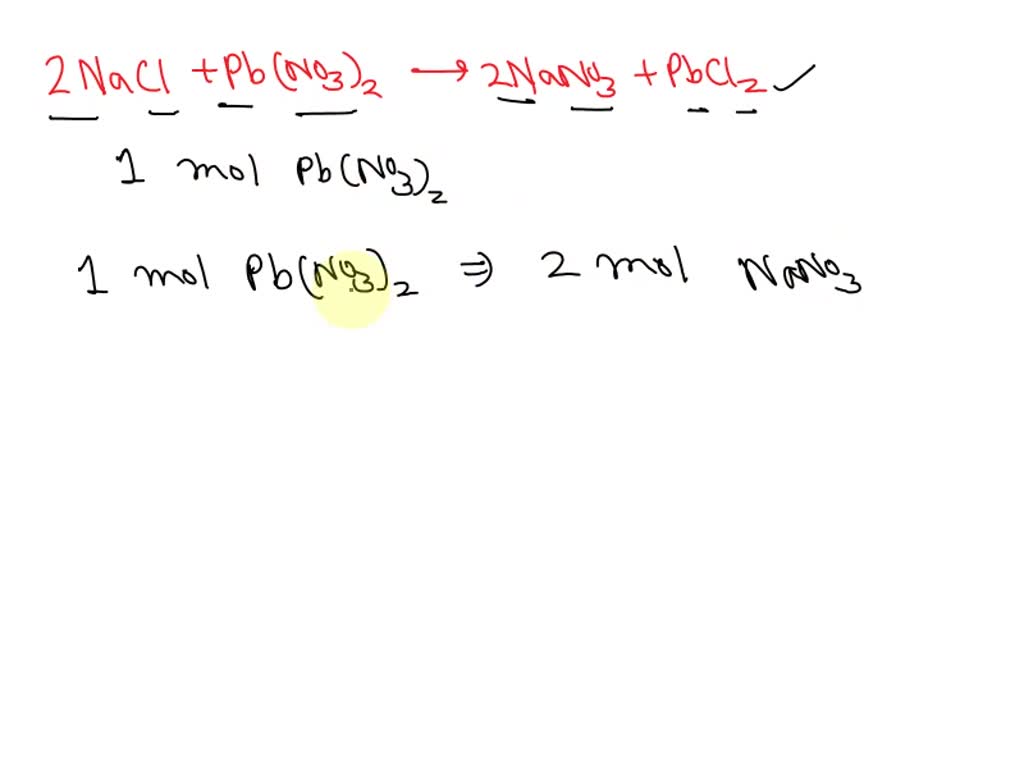 2NaCl + Pb(NO3)2 → 2NaNO3 + PbCl2 ✓
1 mol Pb(NO3)2
1 mol Pb(NO3)2 ⇒ 2 mol NaNO3